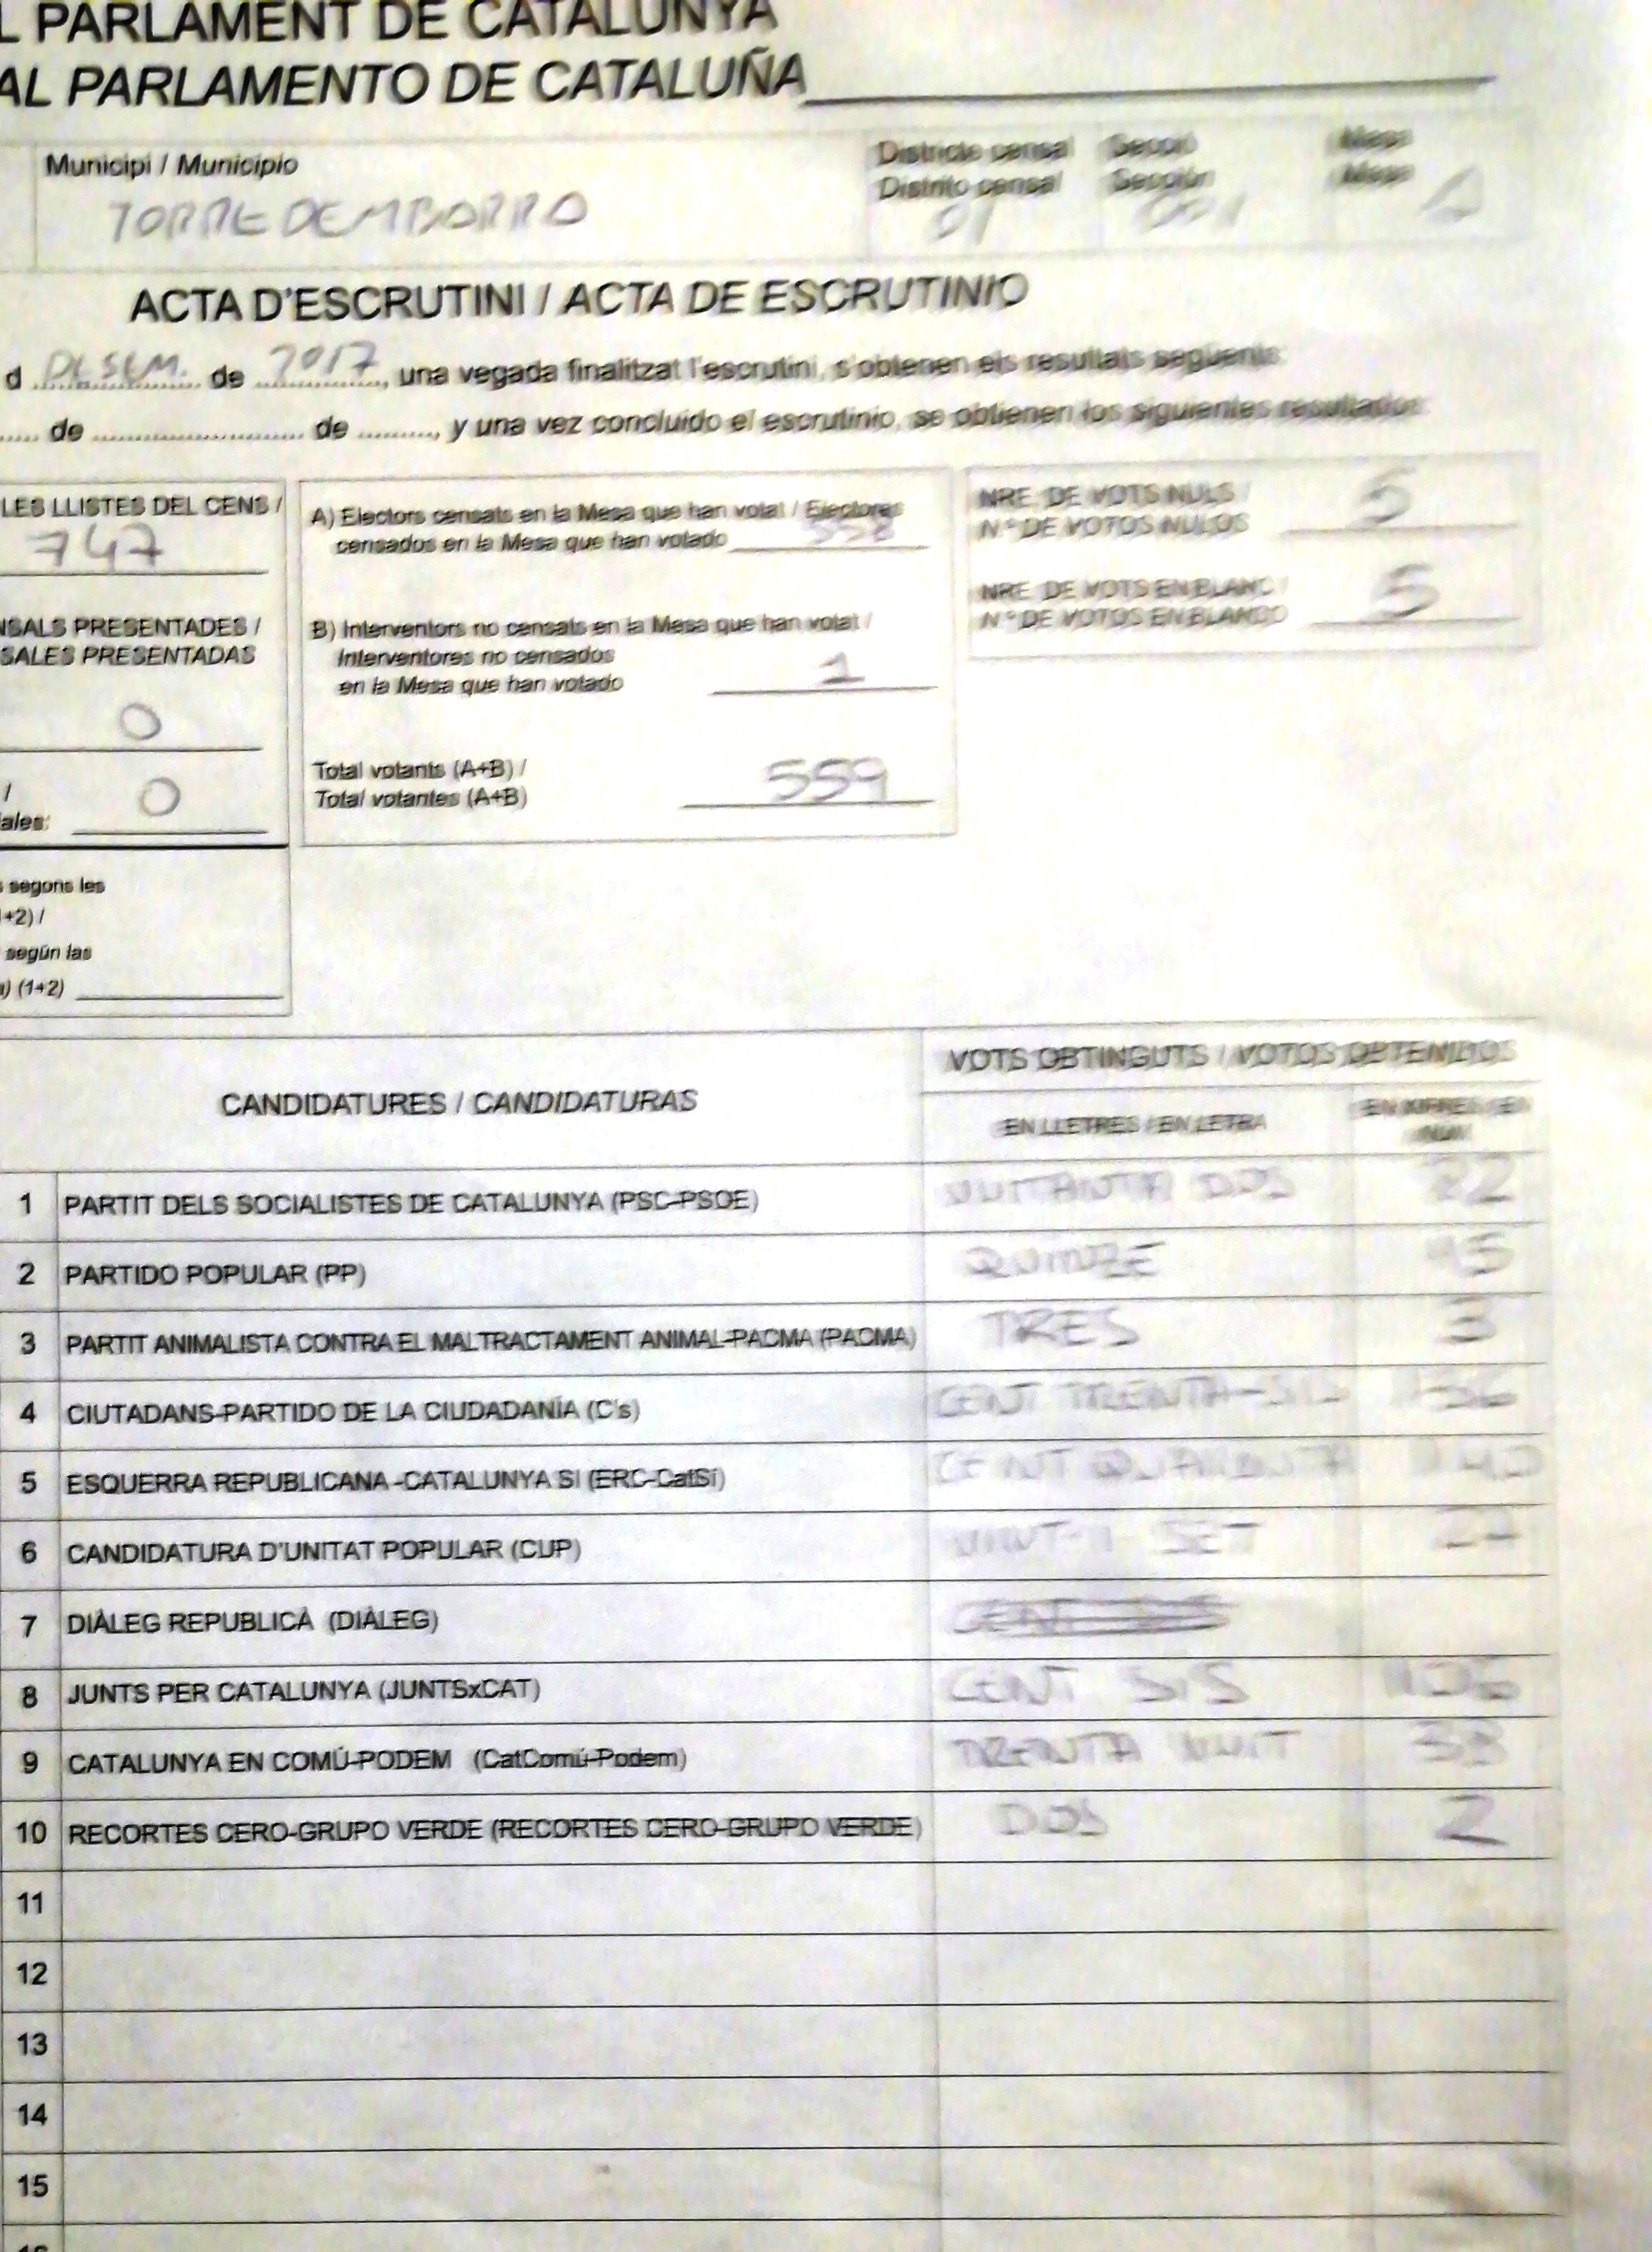 L PARLAMENT DE CATALUNYA
AL PARLAMENTO DE CATALUÑA
Municipi / Municipio
Districte censal Secció Mesa
Distrito censal Sección Mesa
TORREDEMBARRA 01 001 A
ACTA D'ESCRUTINI / ACTA DE ESCRUTINIO
d DESEM. de 2017, una vegada finalitzat l'escrutini, s'obtenen els resultats següents:
de de , y una vez concluido el escrutinio, se obtienen los siguientes resultados:
LES LLISTES DEL CENS /
747
NSALS PRESENTADES /
SALES PRESENTADAS
0
/
ales: 0
segons les
+2) /
según las
(1+2)
A) Electors censats en la Mesa que han votat / Electores
censados en la Mesa que han votado 558
B) Interventors no censats en la Mesa que han votat /
Interventores no censados
en la Mesa que han votado 1
Total votants (A+B) /
Total votantes (A+B) 559
NRE. DE VOTS NULS /
N.º DE VOTOS NULOS 5
NRE. DE VOTS EN BLANC /
N.º DE VOTOS EN BLANCO 5
CANDIDATURES / CANDIDATURAS
VOTS OBTINGUTS / VOTOS OBTENIDOS
EN LLETRES / EN LETRA
EN XIFRES / EN
NÚM
1 PARTIT DELS SOCIALISTES DE CATALUNYA (PSC-PSOE) VUITANTA DOS 82
2 PARTIDO POPULAR (PP) QUINZE 15
3 PARTIT ANIMALISTA CONTRA EL MALTRACTAMENT ANIMAL-PACMA (PACMA) TRES 3
4 CIUTADANS-PARTIDO DE LA CIUDADANÍA (C's) CENT TRENTA-SIS 136
5 ESQUERRA REPUBLICANA-CATALUNYA SÍ (ERC-CatSí) CENT QUARANTA 140
6 CANDIDATURA D'UNITAT POPULAR (CUP) VINT-I SET 27
7 DIÀLEG REPUBLICÀ (DIÀLEG) CENT SIS
8 JUNTS PER CATALUNYA (JUNTSxCAT) CENT SIS 106
9 CATALUNYA EN COMÚ-PODEM (CatComú-Podem) TRENTA VUIT 38
10 RECORTES CERO-GRUPO VERDE (RECORTES CERO-GRUPO VERDE) DOS 2
11
12
13
14
15